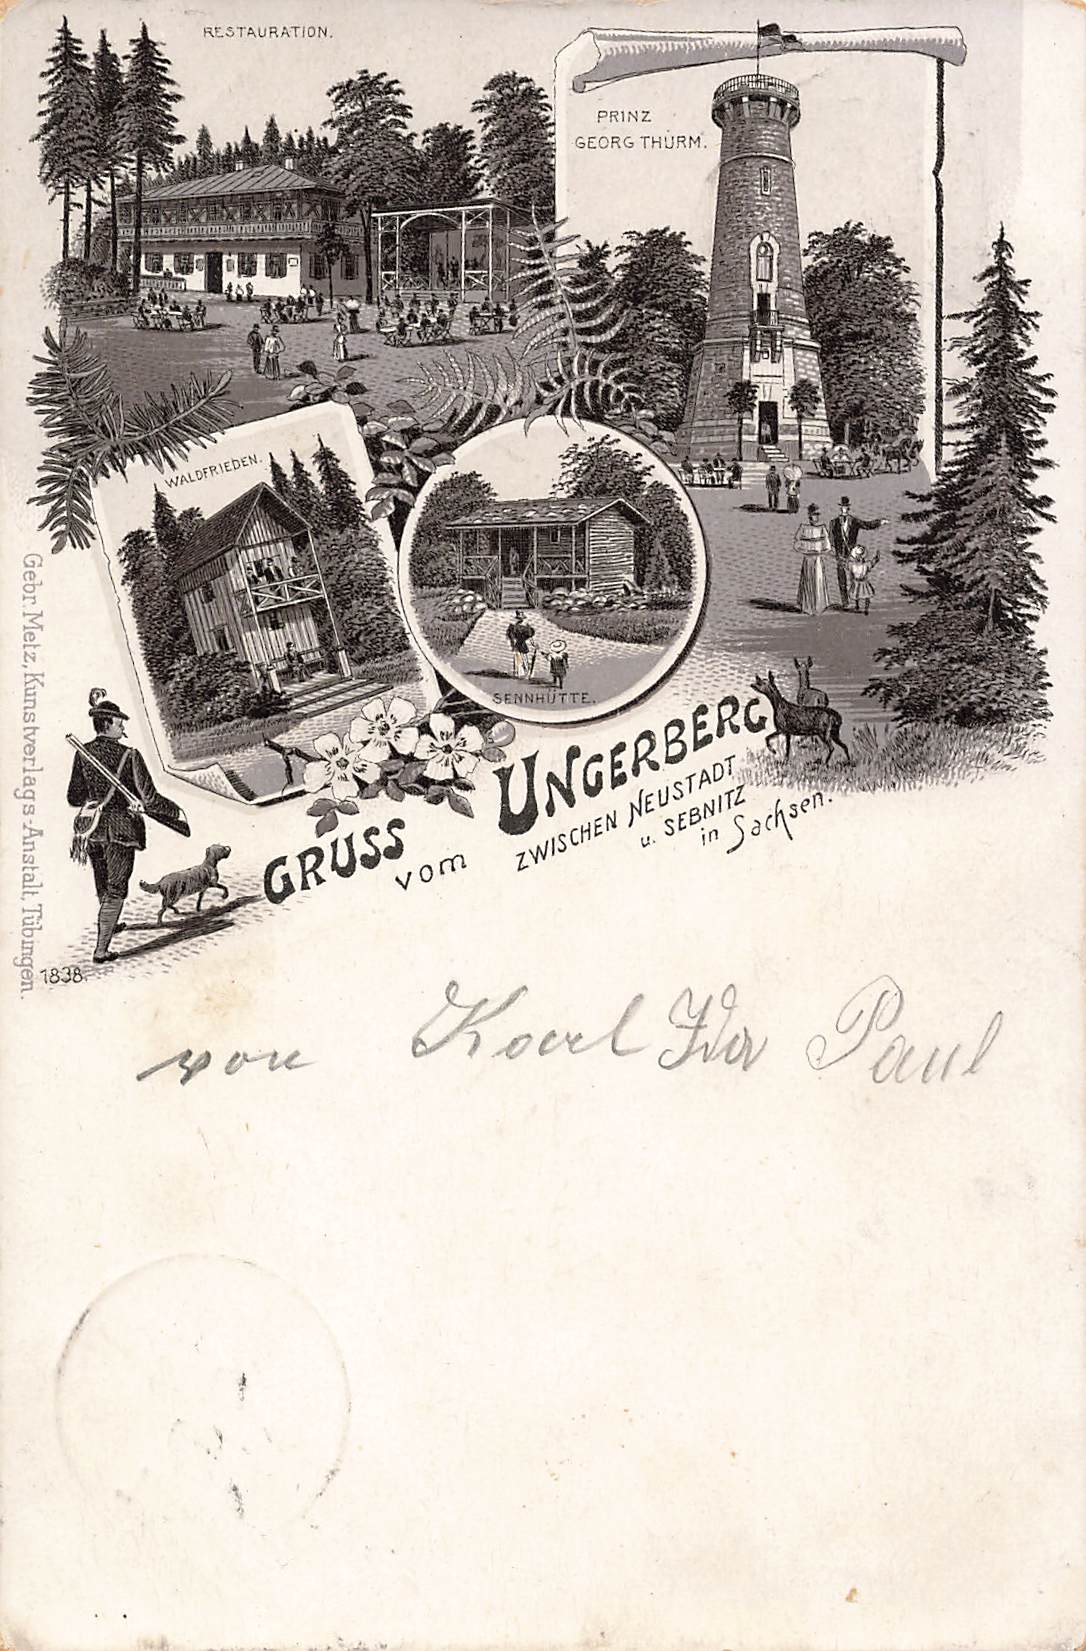 RESTAURATION.
PRINZ
GEORG THURM.
WALDFRIEDEN.
SENNHÜTTE.
GRUSS vom UNGERBERG
ZWISCHEN NEUSTADT
u. SEBNITZ
in Sachsen.
Gebr. Metz, Kunstverlags-Anstalt, Tübingen.
1838.
von Karl Ida Paul